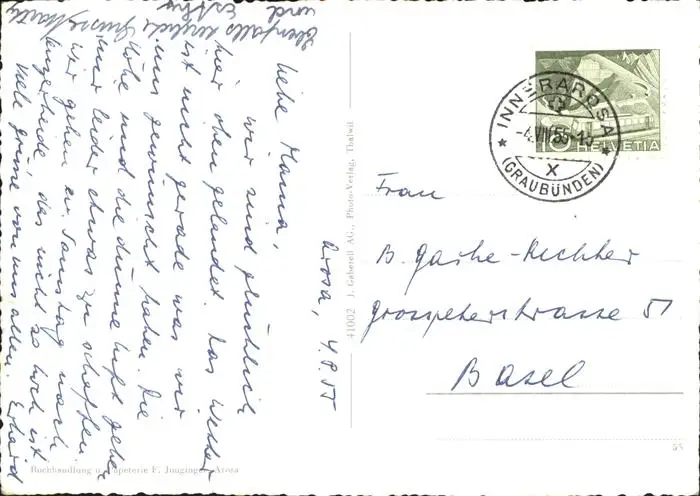 Arosa, 4.8.55
Liebe Mama,
wir sind glücklich
hier oben gelandet. Das Wetter
ist nicht gerade was wir
uns gewünscht haben. Die
Höhe und die dünne Luft geben
mir leider etwas zu schaffen.
Wir gehen am Samstag nach
Lenzerheide, das nicht so hoch ist.
Viele Grüsse von uns allen. Erhard
Ebenfalls Grüsse
und
INNERAROSA
-4.VIII.55-1
X
(GRAUBÜNDEN)
10 HELVETIA
Frau
B. Gashe-Richter
Grosspeterstrasse 51
Basel
41002 J. Gaberell AG., Photo-Verlag, Thalwil
Buchhandlung u. Papeterie F. Junginger, Arosa
55